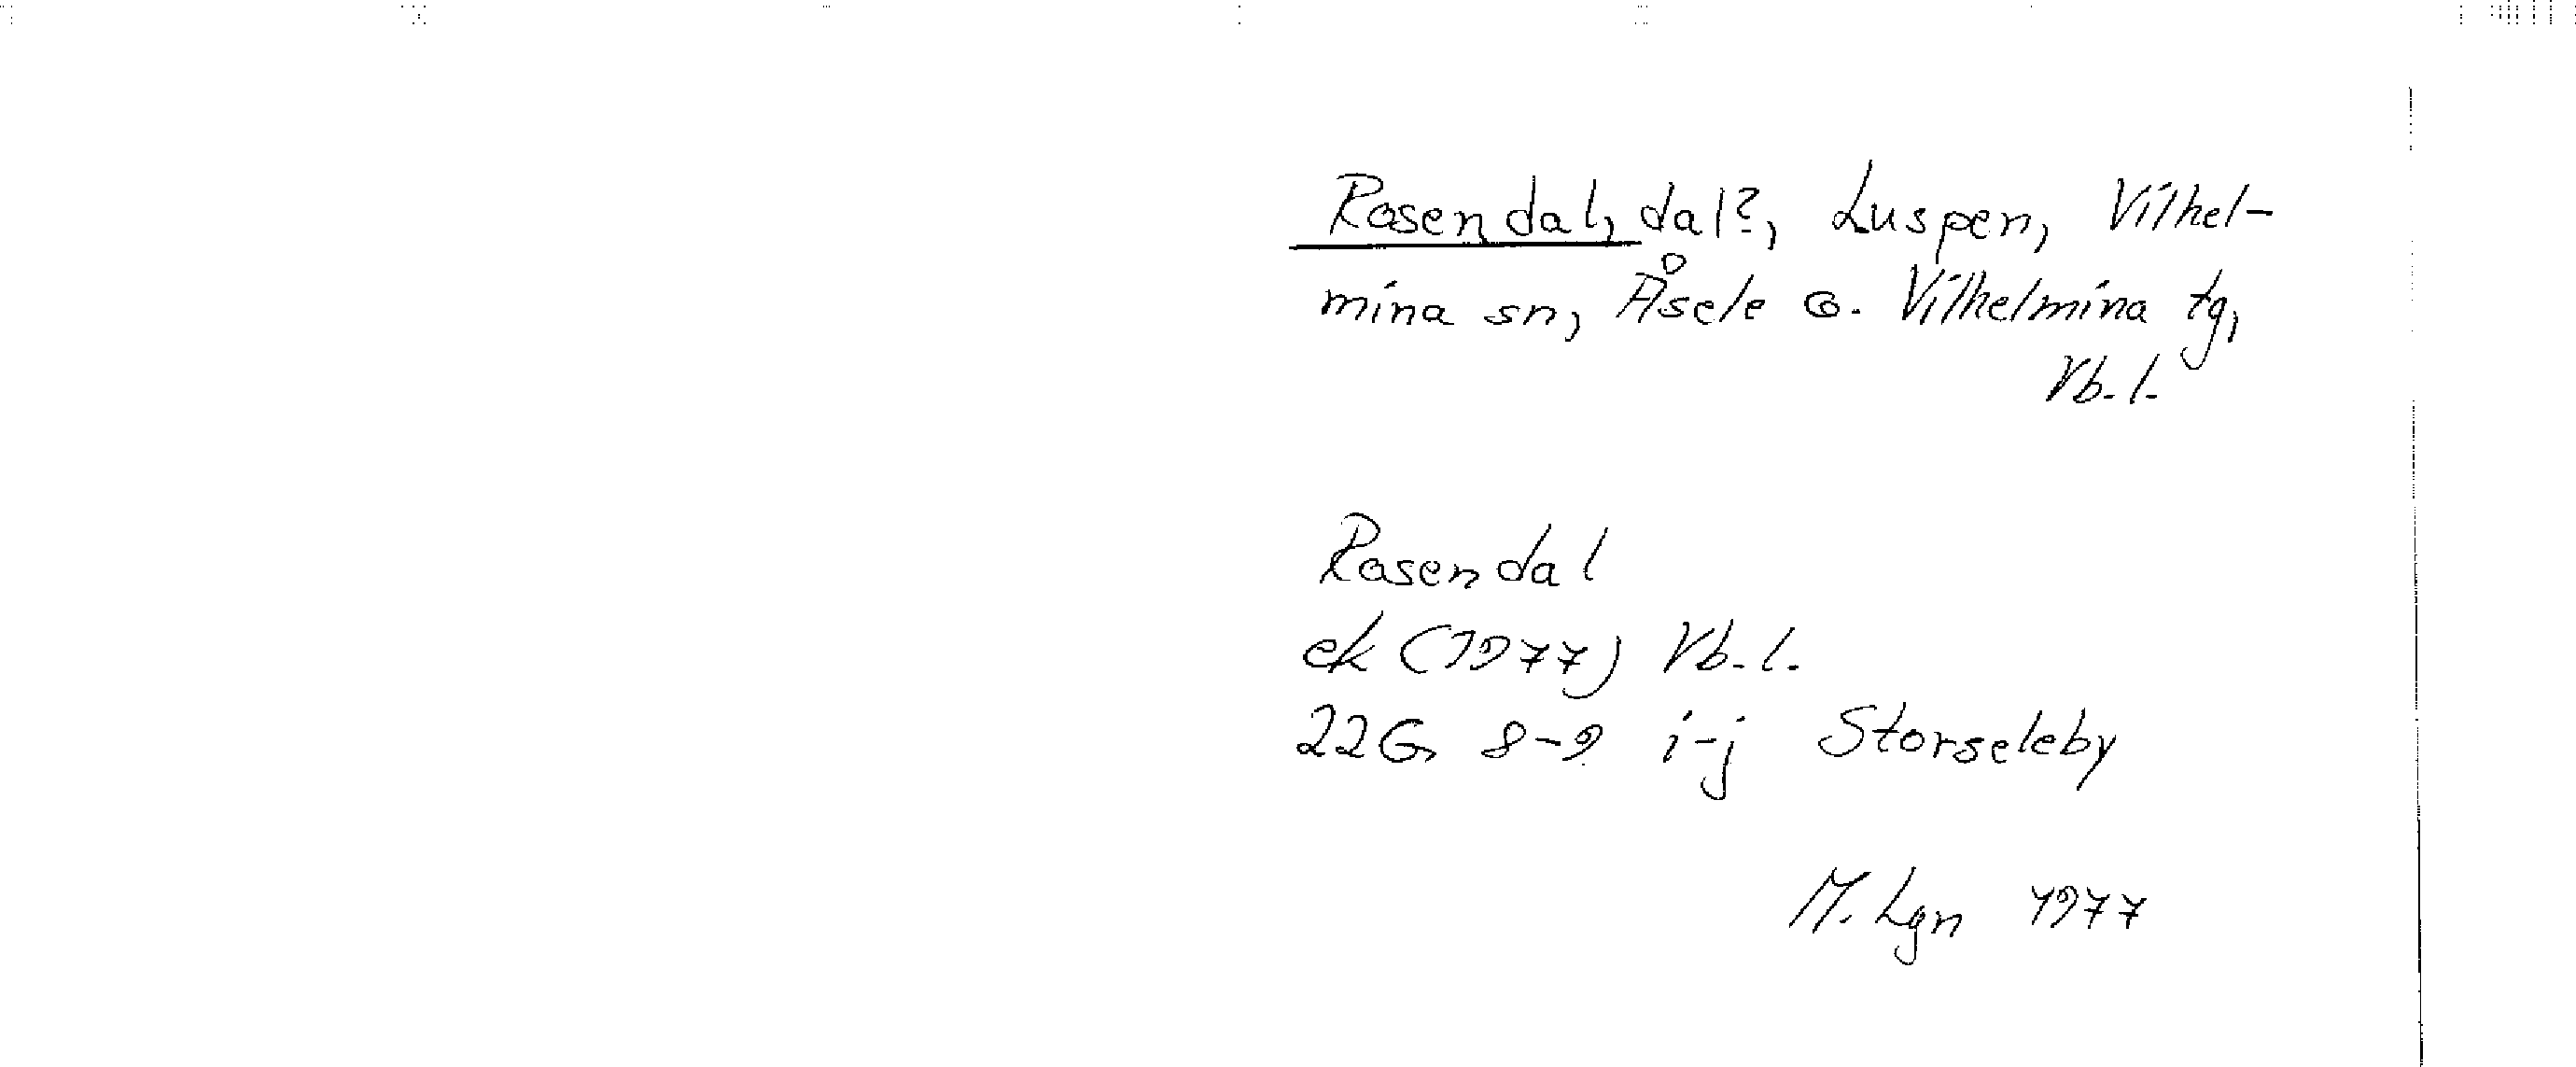 Rosendal, dal?, Luspen, Vilhel-
mina sn, Åsele o. Vilhelmina tg,
Vb. l.
Rosendal
ek (1977) Vb. l.
22G 8-9 i-j Storseleby
M. Lgn 1977